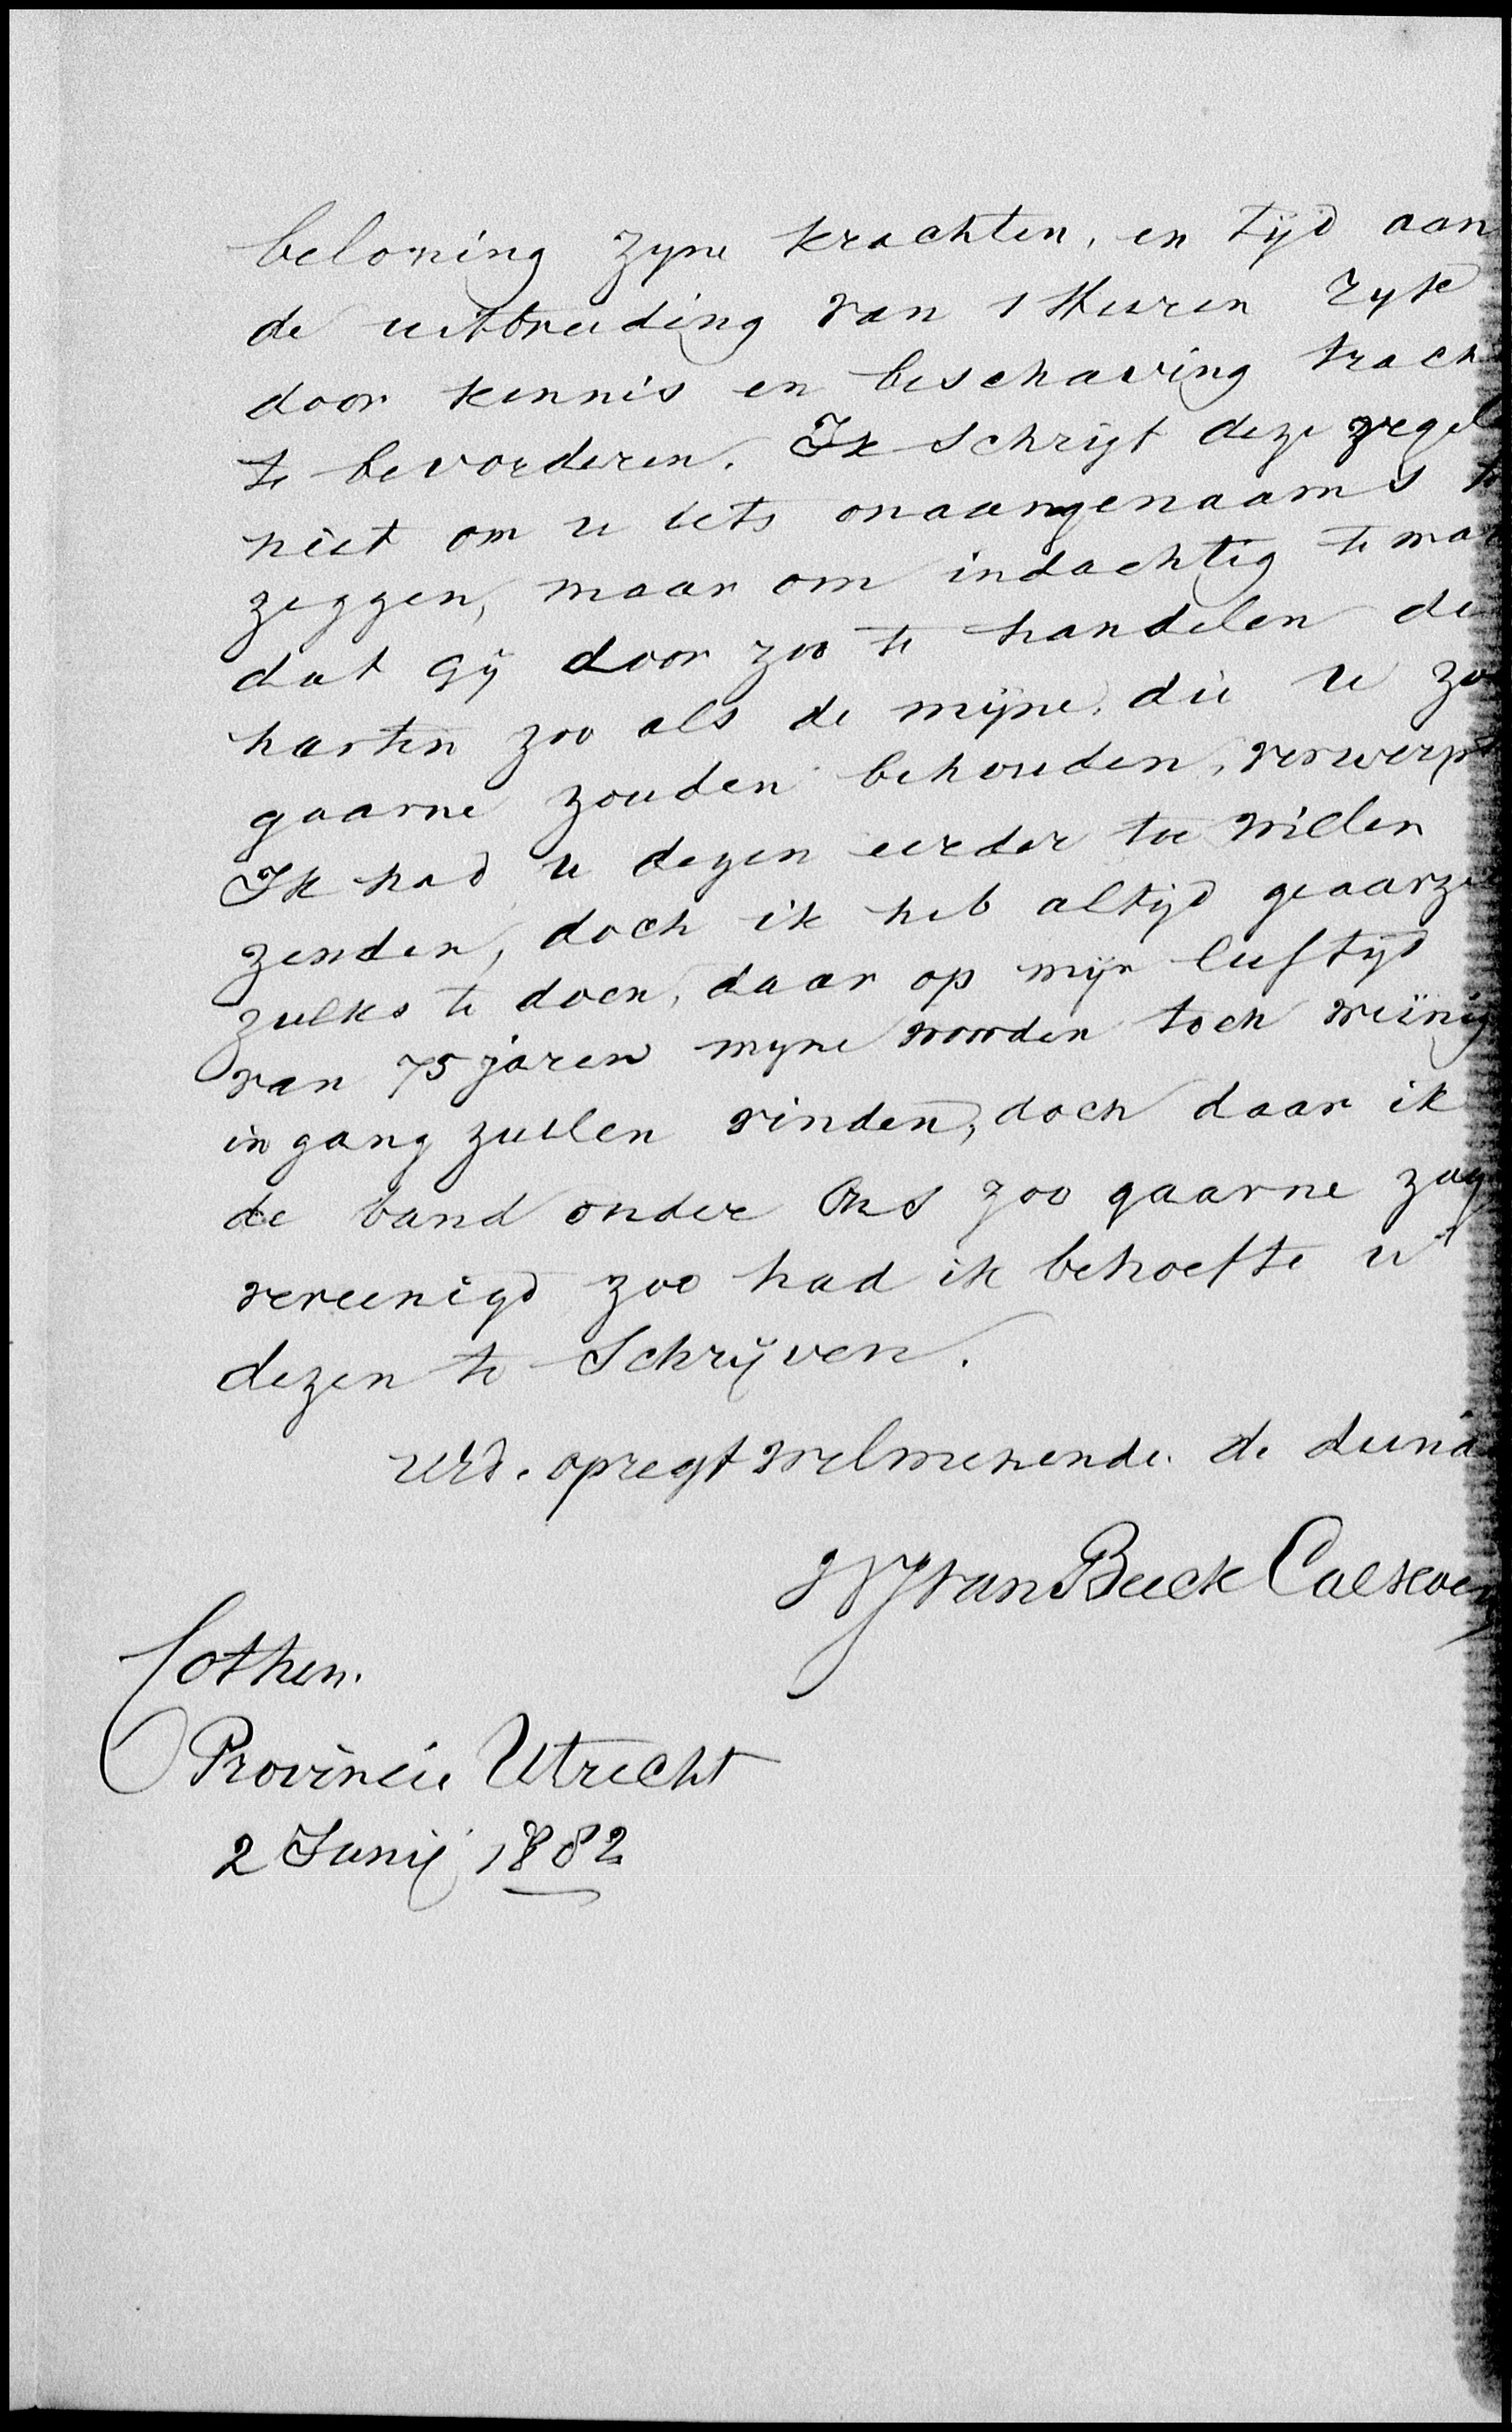 beloning zyne krachten, en tijd aan
de uitbreiding van 's Heeren ryk
door kennis en beschaving trach
te bevorderen. Ik schrijf deze regel
niet om u iets onaangenaams t
zeggen, maar om indachtig te ma
dat gij door zoo te handelen de
harten zoo als de mijne, die u zo
gaarne zouden behouden, verwerpt
Ik had u dezen eerder toe willen
zenden, doch ik heb altijd geaarze
zulks te doen, daar op mijn leeftijd
van 75 jaren myne woorden toch weinig
ingang zullen vinden, doch daar ik
de band onder Ons zoo gaarne zag
vereenigd zoo had ik behoefte u
dezen te Schrijven.
UEd. opregt welmenende de
W J van Beeck Calkoen
Cothen.
Provincie Utrecht
2 Junij 1882